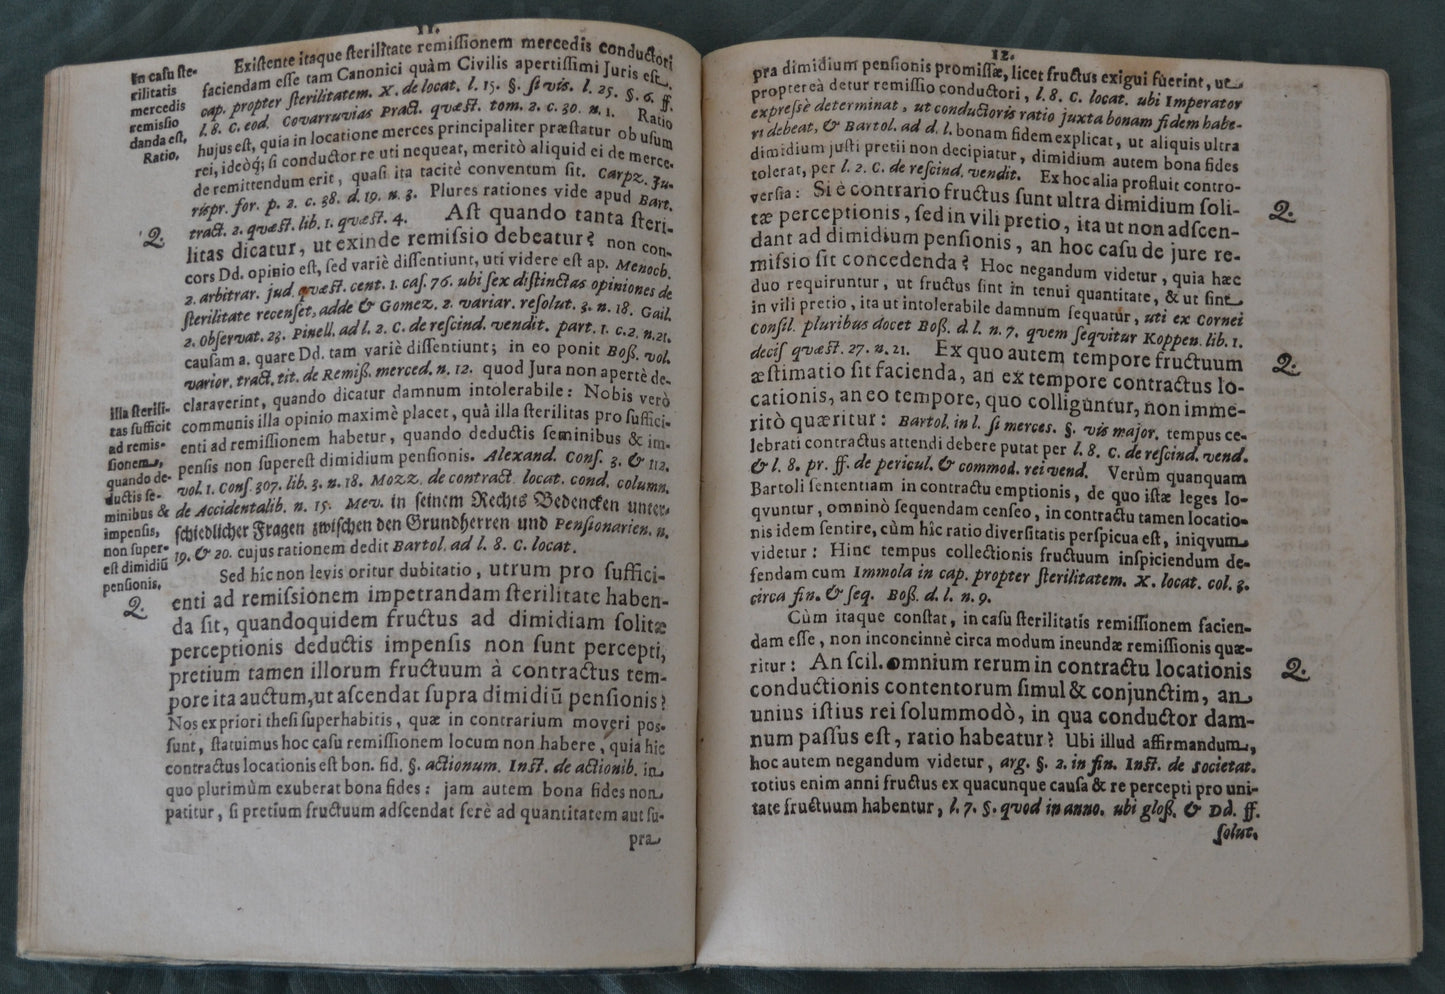 11.
In casu ste-
rilitatis
mercedis
remissio
danda est,
Ratio,
Existente itaque sterilitate remissionem mercedis conductori
faciendam esse tam Canonici quàm Civilis apertissimi Juris est.
cap. propter sterilitatem. X. de locat. l. 15. §. si vis. l. 25. §. 6. ff.
l. 8. C. eod. Covarruvias Pract. quæst. tom. 2. c. 30. n. 1. Ratio
hujus est, quia in locatione merces principaliter præstatur ob usum
rei, ideóq; si conductor re uti nequeat, meritò aliquid ei de merce-
de remittendum erit, quasi ita tacitè conventum sit. Carpz. Ju-
rispr. for. p. 2. c. 38. d. 19. n. 3. Plures rationes vide apud Bart.
tract. 2. quæst. lib. 1. quæst. 4. Ast quando tanta steri-
Q.
litas dicatur, ut exinde remissio debeatur? non con-
cors Dd. opinio est, sed variè dissentiunt, uti videre est ap. Menoch.
2. arbitrar. jud. quæst. cent. 1. cas. 76. ubi sex distinctas opiniones de
sterilitate recenset, adde & Gomez. 2. variar. resolut. 3. n. 18. Gail.
2. Observat. 23. Pinell. ad l. 2. C. de rescind. vendit. part. 1. c. 2. n. 21.
causam a. quare Dd. tam variè dissentiunt; in eo ponit Boß. vol.
varior. tract. tit. de Remiß. merced. n. 12. quod Jura non apertè de-
claraverint, quando dicatur damnum intolerabile: Nobis verò
communis illa opinio maximè placet, quà illa sterilitas pro suffici-
enti ad remissionem habetur, quando deductis seminibus & im-
pensis non superest dimidium pensionis. Alexand. Cons. 3. & 112.
vol. 1. Cons. 307. lib. 3. n. 18. Mozz. de contract. locat. cond. column.
de Accidentalib. n. 15. Mev. in seinem Rechts Bedencken unter-
schiedlicher Fragen zwischen den Grundherren und Pensionarien. n.
19. & 20. cujus rationem dedit Bartol. ad l. 8. C. locat.
illa sterili-
tas sufficit
ad remis-
sionem,
quando de-
ductis se-
minibus &
impensis,
non super-
est dimidiũ
pensionis,
Sed híc non levis oritur dubitatio, utrum pro suffici-
Q.
enti ad remissionem impetrandam sterilitate haben-
da sit, quandoquidem fructus ad dimidiam solitæ
perceptionis deductis impensis non sunt percepti,
pretium tamen illorum fructuum à contractus tem-
pore ita auctum, ut ascendat supra dimidiũ pensionis?
Nos ex priori thesi superhabitis, quæ in contrarium moveri pos-
sunt, statuimus hoc casu remissionem locum non habere, quia hic
contractus locationis est bon. fid. §. actionum. Inst. de actionib. in
quo plurimùm exuberat bona fides: jam autem bona fides non
patitur, si pretium fructuum adscendat ferè ad quantitatem aut su-
pra
12.
pra dimidium pensionis promissæ, licet fructus exigui fuerint, ut
propterea detur remissio conductori, l. 8. C. locat. ubi Imperator
expressè determinat, ut conductoris ratio juxta bonam fidem habe-
ri debeat, & Bartol. ad d. l. bonam fidem explicat, ut aliquis ultra
dimidium justi pretii non decipiatur, dimidium autem bona fides
tolerat, per l. 2. C. de rescind. vendit. Ex hoc alia profluit contro-
versia: Si è contrario fructus sunt ultra dimidium soli-
Q.
tæ perceptionis, sed in vili pretio, ita ut non adscen-
dant ad dimidium pensionis, an hoc casu de jure re-
missio sit concedenda? Hoc negandum videtur, quia hæc
duo requiruntur, ut fructus sint in tenui quantitate, & ut sint
in vili pretio, ita ut intolerabile damnum sequatur, uti ex Cornei
Consil. pluribus docet Boß. d. l. n. 7. quem sequitur Koppen. lib. 1.
decis quæst. 27. n. 21. Ex quo autem tempore fructuum
Q.
æstimatio sit facienda, an ex tempore contractus lo-
cationis, an eo tempore, quo colliguntur, non imme-
ritò quæritur: Bartol. in l. si merces. §. vis major. tempus ce-
lebrati contractus attendi debere putat per l. 8. C. de rescind. vend.
& l. 8. pr. ff. de pericul. & commod. rei vend. Verùm quanquam
Bartoli sententiam in contractu emptionis, de quo istæ leges lo-
qvuntur, omninò sequendam censeo, in contractu tamen locatio-
nis idem sentire, cùm híc ratio diversitatis perspicua est, iniqvum
videtur: Hinc tempus collectionis fructuum inspiciendum de-
fendam cum Immola in cap. propter sterilitatem. X. locat. col. 3.
circa fin. & seq. Boß. d. l. n. 9.
Cùm itaque constat, in casu sterilitatis remissionem facien-
dam esse, non inconcinnè circa modum ineundæ remissionis quæ-
ritur: An scil. omnium rerum in contractu locationis
Q.
conductionis contentorum simul & conjunctim, an
unius istius rei solummodò, in qua conductor dam-
num passus est, ratio habeatur? Ubi illud affirmandum,
hoc autem negandum videtur, arg. §. 2. in fin. Inst. de societat.
totius enim anni fructus ex quacunque causa & re percepti pro uni-
tate fructuum habentur, l. 7. §. quod in anno. ubi gloß. & Dd. ff.
solut.